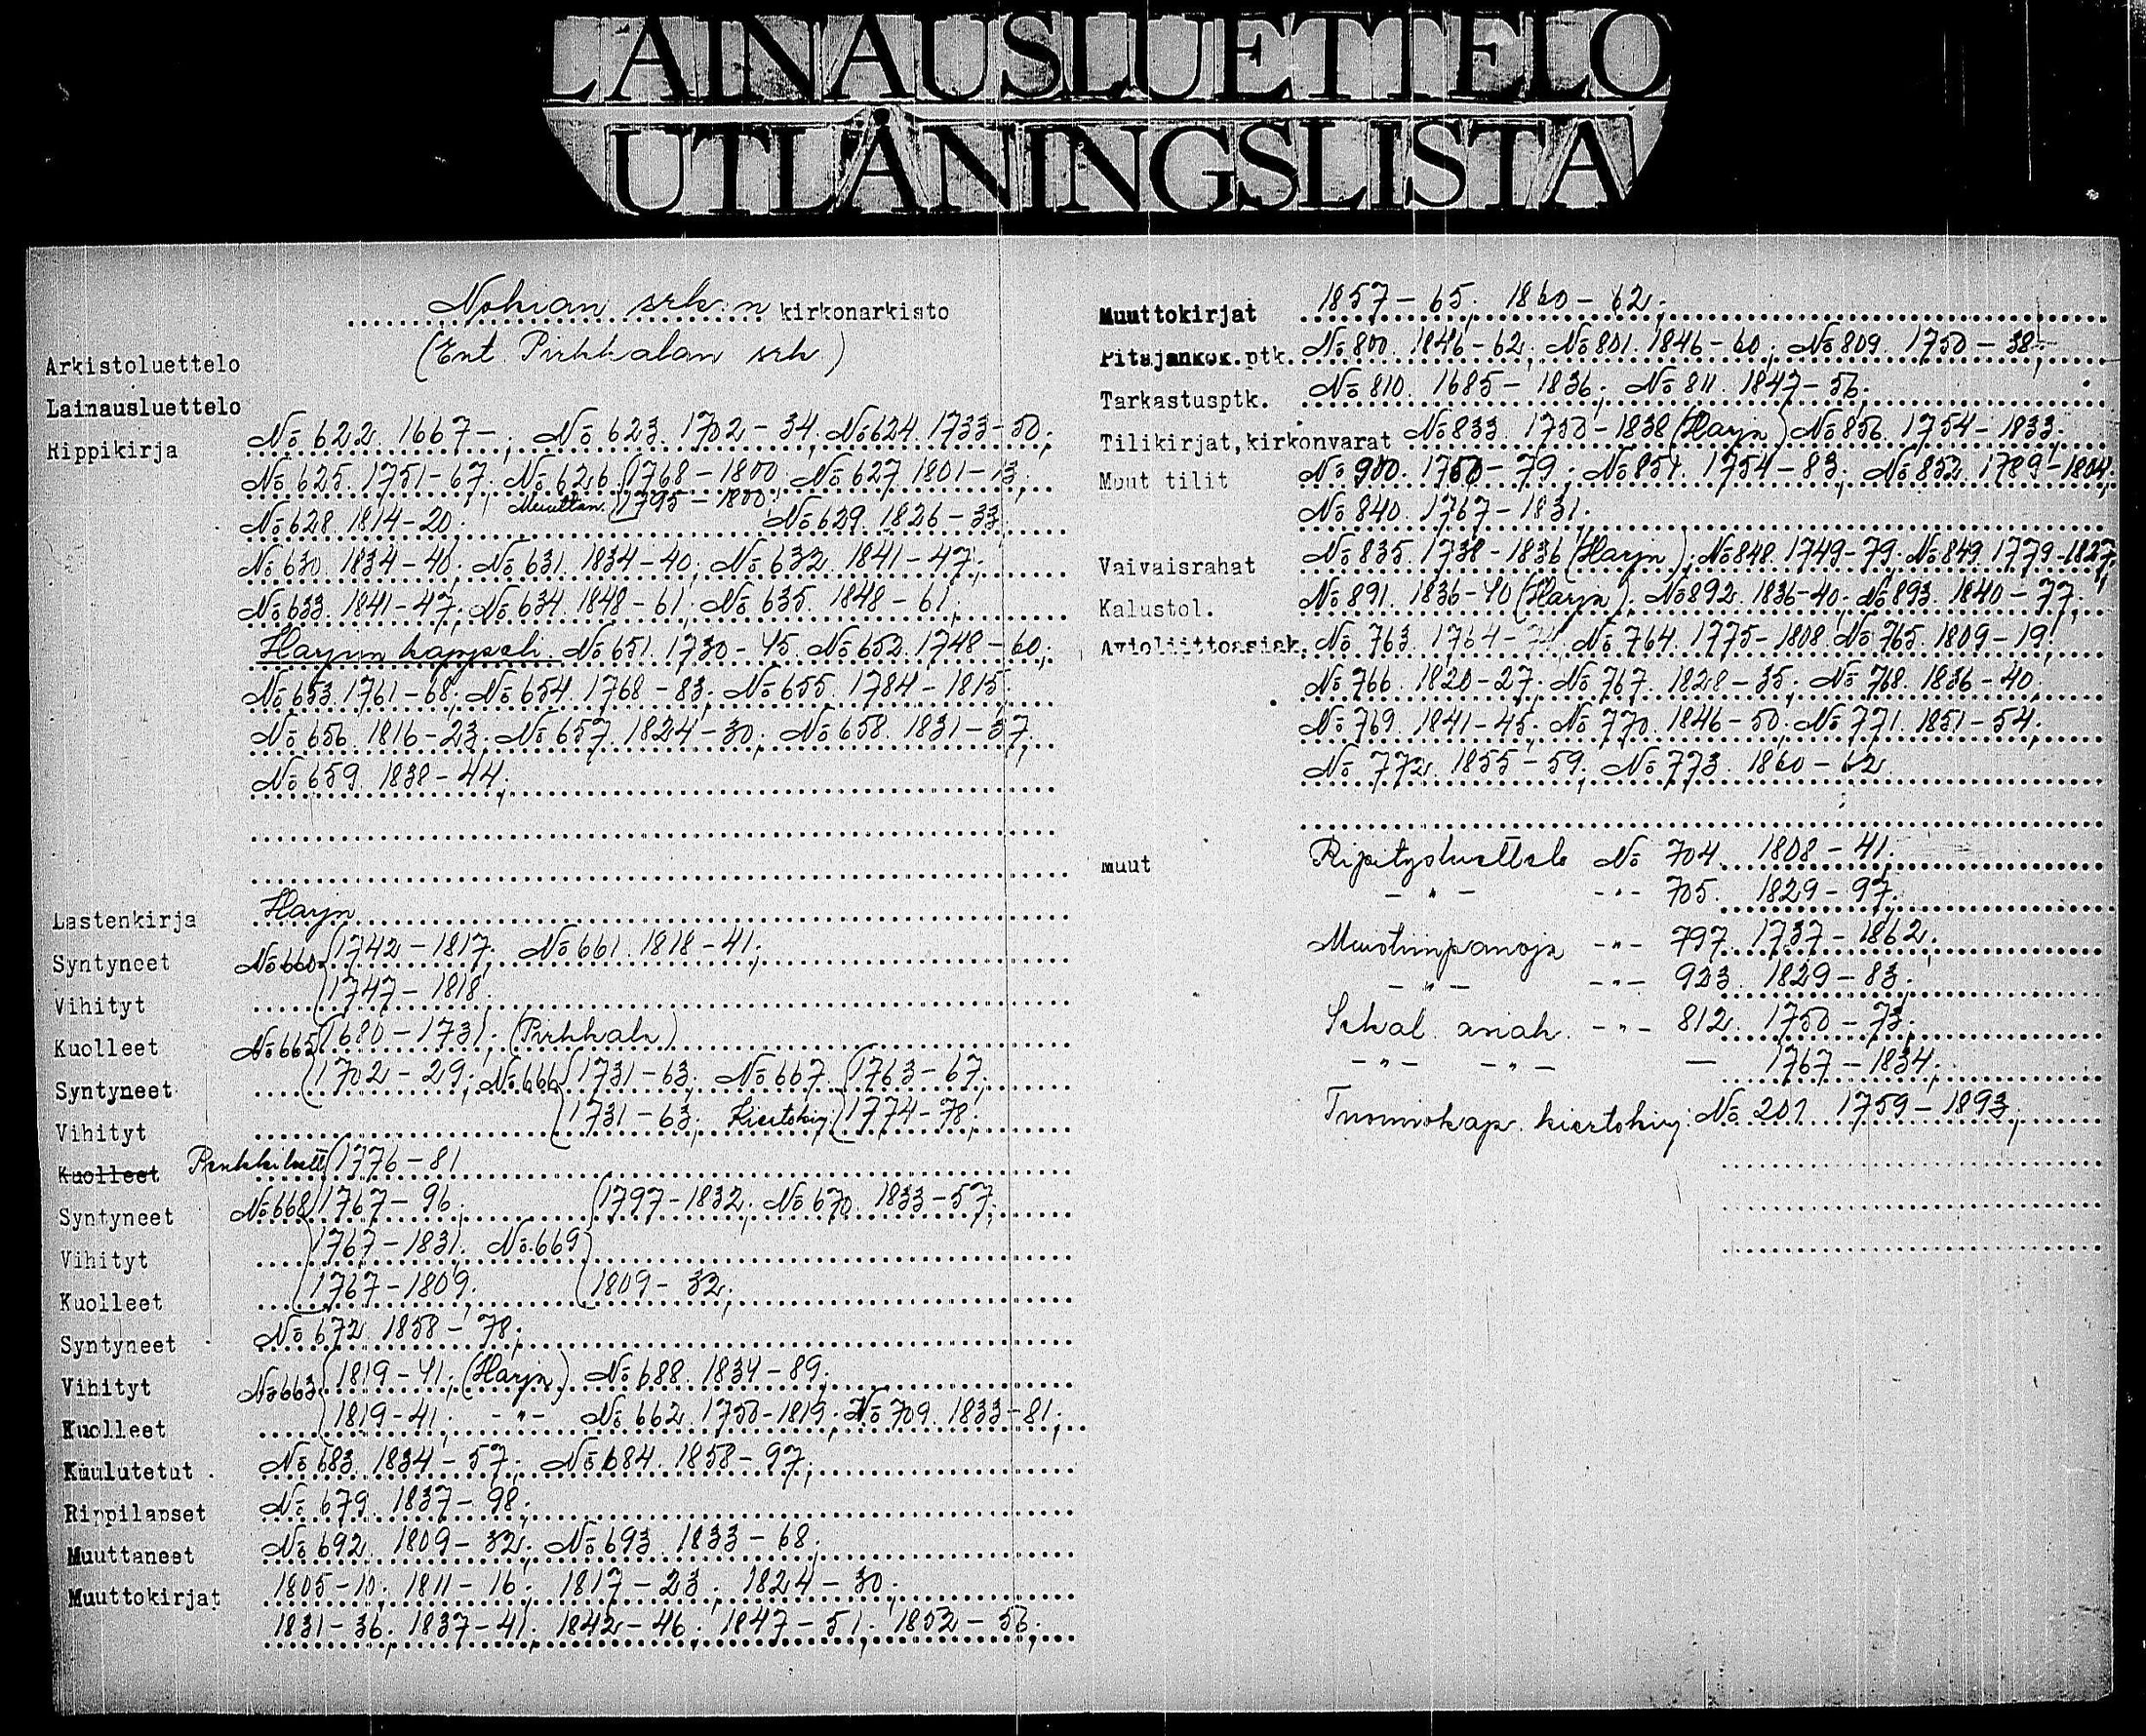 LAINAUSLUETTELO
UTLÅNINGSLISTA
Nokian srk:n kirkonarkisto
(Ent. Pirkkalan srk)
Arkistoluettelo
Lainausluettelo
Rippikirja No 622. 1667-; No 623. 1702-34; No 624. 1733-50;
No 625. 1751-67; No 626 (1768-1800; No 627. 1801-13;
Muuttan. (1795-1800;
No 628. 1814-20; No 629. 1826-33
No 630. 1834-40; No 631. 1834-40; No 632. 1841-47;
No 633. 1841-47; No 634. 1848-61; No 635. 1848-61;
Harjun kappeli. No 651. 1730-45. No 652. 1748-60;
No 653. 1761-68; No 654. 1768-83; No 655. 1784-1815;
No 656. 1816-23; No 657. 1824-30; No 658. 1831-37;
No 659. 1838-44;
Lastenkirja Harju
Syntyneet No 660 (1742-1817; No 661. 1818-41;
Vihityt (1747-1818;
Kuolleet No 665 (1680-1731; (Pirkkala)
Syntyneet (1702-29; No 666 (1731-63; No 667. (1763-67;
Vihityt (1731-63; Kiertokirj. (1774-78;
Kuolleet (1776-81
Syntyneet No 668 (1767-96; (1797-1832; No 670. 1833-57;
Vihityt 1767-1831; No 669
Kuolleet (1767-1809; (1809-32;
Syntyneet No 672. 1858-78;
Vihityt No 663 (1819-41; (Harju) No 688. 1834-89;
Kuolleet (1819-41; -"- No 662. 1750-1819; No 709. 1833-81;
Kuulutetut No 683. 1834-57; No 684. 1858-97;
Rippilapset No 679. 1837-98;
Muuttaneet No 692. 1809-32; No 693. 1833-68;
Muuttokirjat 1805-10; 1811-16; 1817-23; 1824-30;
1831-36; 1837-41; 1842-46; 1847-51; 1852-56;
Muuttokirjat 1857-65; 1860-62;
Pitäjänkok.ptk. No 800. 1846-62; No 801. 1846-60; No 809. 1750-38;
Tarkastusptk. No 810. 1685-1836; No 811. 1847-56;
Tilikirjat,kirkonvarat No 833. 1750-1838 (Harju) No 856. 1754-1833;
Muut tilit No 900. 1750-79; No 851. 1754-83; No 852. 1789-1804;
No 840. 1767-1831;
Vaivaisrahat No 835. 1738-1836 (Harju); No 848. 1749-79; No 849. 1779-1827;
Kalustol. No 891. 1836-40 (Harju); No 892. 1836-40; No 893. 1840-77;
Avioliittoasiak. No 763. 1764- No 764. 1775-1808. No 765. 1809-19;
No 766. 1820-27; No 767. 1828-35; No 768. 1836-40;
No 769. 1841-45; No 770. 1846-50; No 771. 1851-54;
No 772. 1855-59; No 773. 1860-62
;
muut Ripitysluettelo No 704. 1808-41;
-"- -"- 705. 1829-97;
Muistiinpanoja -"- 797. 1737-1862;
-"- -"- 923. 1829-83;
Sekal. asiak. -"- 812. 1750-73;
-"- -"- — 1767-1834;
Tuomiokap. kiertokirj: No 201. 1759-1893;